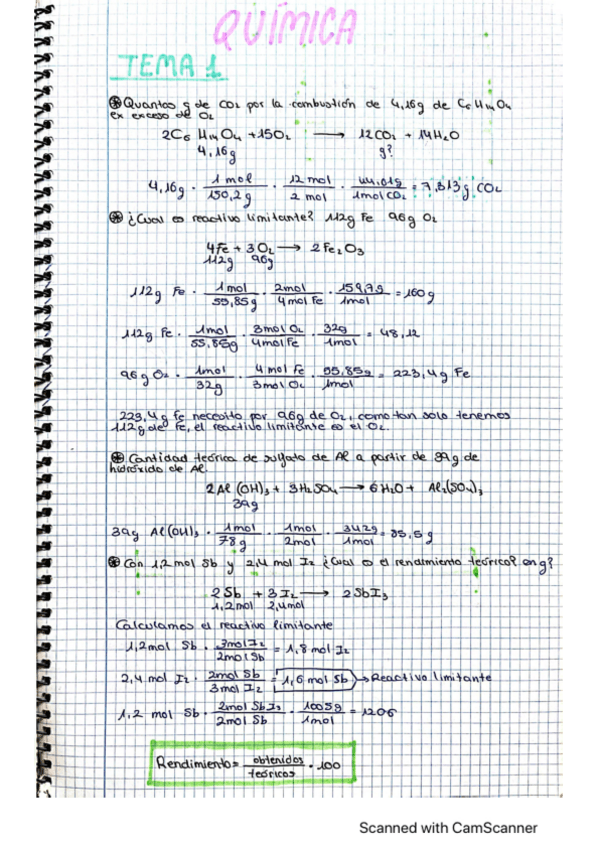 QUÍMICA
TEMA 1
⊛ Quantos g de CO₂ por la combustión de 4,16g de C₆H₁₄O₄
ex exceso de O₂
2C₆H₁₄O₄ + 15O₂ → 12CO₂ + 14H₂O
4,16g g?
4,16g · 1 mol/150,2g · 12 mol/2 mol · 44,01g/1mol CO₂ = 7,313g CO₂
⊛ ¿Cual es reactivo limitante? 112g Fe 96g O₂
4Fe + 3O₂ → 2Fe₂O₃
112g 96g
112g Fe · 1mol/55,85g · 2mol/4mol Fe · 159,7g/1mol = 160g
112g Fe · 1mol/55,85g · 3mol O₂/4mol Fe · 32g/1mol = 48,12
96g O₂ · 1mol/32g · 4 mol Fe/3mol O₂ · 55,85g/1mol = 223,4g Fe
223,4g Fe necesito por 96g de O₂, como tan solo tenemos
112g de Fe, el reactivo limitante es el O₂.
⊛ Cantidad teórica de sulfato de Al a partir de 39g de
hidróxido de Al.
2Al(OH)₃ + 3H₂SO₄ → 6H₂O + Al₂(SO₄)₃
39g
39g Al(OH)₃ · 1mol/78g · 1mol/2mol · 342g/1mol = 85,5g
⊛ Con 1,2mol Sb y 2,4 mol I₂ ¿Cual es el rendimiento teórico? en g?
2Sb + 3I₂ → 2SbI₃
1,2mol 2,4mol
Calculamos el reactivo limitante
1,2mol Sb · 3mol I₂/2mol Sb = 1,8 mol I₂
2,4 mol I₂ · 2mol Sb/3mol I₂ = 1,6 mol Sb → Reactivo limitante
1,2 mol Sb · 2mol SbI₃/2mol Sb · 1005g/1mol = 1206
Rendimiento = obtenidos/teóricos · 100
Scanned with CamScanner